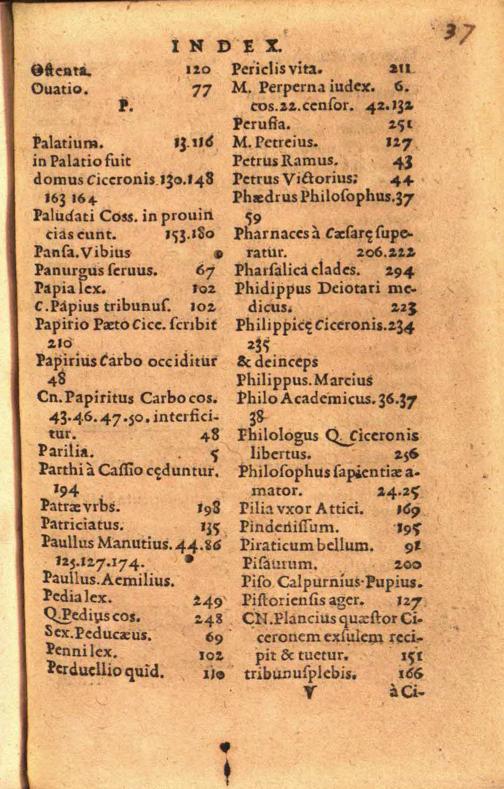 37
INDEX.
Oſtenta. 120
Ouatio. 77
P.
Palatium. 13.116
in Palatio fuit
domus Ciceronis 130.148
163 164
Paludati Coss. in prouin
cias eunt. 153.180
Panſa. Vibius
Panurgus ſeruus. 67
Papia lex. 102
C. Papius tribunuſ. 102
Papirio Pæto Cice. ſcribit
210
Papirius Carbo occiditur
48
Cn. Papiritus Carbo cos.
43.46.47.50. interfici-
tur. 48
Parilia. 5
Parthi à Caſſio cęduntur.
194
Patræ vrbs. 198
Patriciatus. 135
Paullus Manutius. 44.86
125.127.174.
Paullus. Aemilius.
Pedia lex. 249
Q. Pedius cos. 248
Sex. Peducæus. 69
Penni lex. 102
Perduellio quid. 110
Periclis vita. 211
M. Perperna iudex. 6.
cos. 22. cenſor. 42.132
Peruſia. 251
M. Petreius. 127
Petrus Ramus. 43
Petrus Victorius; 44
Phædrus Philoſophus. 37
59
Pharnaces à Cæſarę ſupe-
ratur. 206.222
Pharſalica clades. 294
Phidippus Deiotari me-
dicus. 223
Philippicę Ciceronis. 234
235
& deinceps
Philippus. Marcius
Philo Academicus. 36.37
38
Philologus Q. Ciceronis
libertus. 256
Philoſophus ſapientiæ a-
mator. 24.25
Pilia vxor Attici. 169
Pindeniſſum. 195
Piraticum bellum. 91
Piſaurum. 200
Piſo Calpurnius Pupius.
Piſtorienſis ager. 127
CN. Plancius quæſtor Ci-
ceronem exſulem reci-
pit & tuetur. 151
tribunuſplebis. 166
V à Ci-